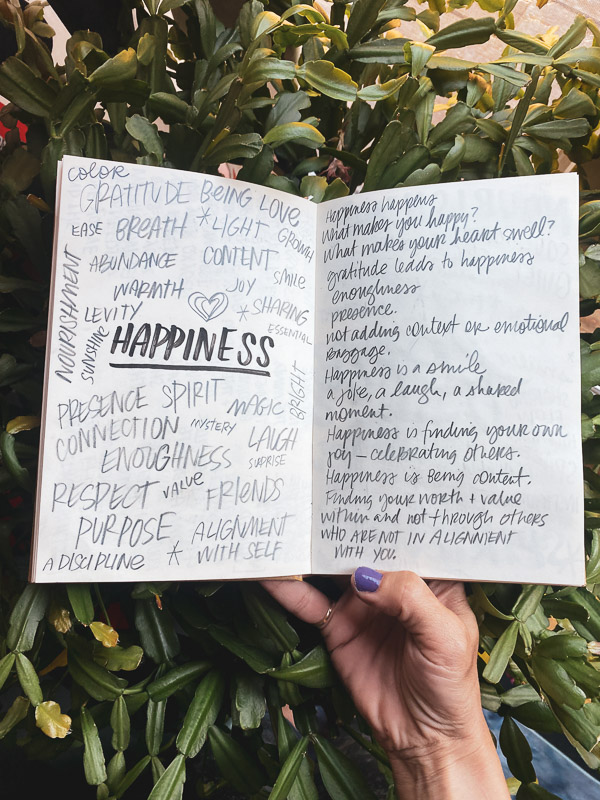 color
GRATITUDE BEING LOVE
EASE BREATH * LIGHT GROWTH
ABUNDANCE CONTENT
NOURISHMENT WARMTH JOY SMILE
LEVITY * SHARING
SUNSHINE ESSENTIAL
HAPPINESS
BRIGHT
PRESENCE SPIRIT MAGIC
CONNECTION MYSTERY LAUGH
ENOUGHNESS SURPRISE
RESPECT VALUE FRIENDS
PURPOSE ALIGNMENT
A DISCIPLINE * WITH SELF
Happiness happens
What makes you happy?
What makes your heart swell?
gratitude leads to happiness
enoughness
presence.
not adding context or emotional
baggage.
Happiness is a smile
a joke, a laugh, a shared
moment.
Happiness is finding your own
joy — celebrating others.
Happiness is Being content.
Finding your worth + value
within and not through others
WHO ARE NOT IN ALIGNMENT
WITH YOU.